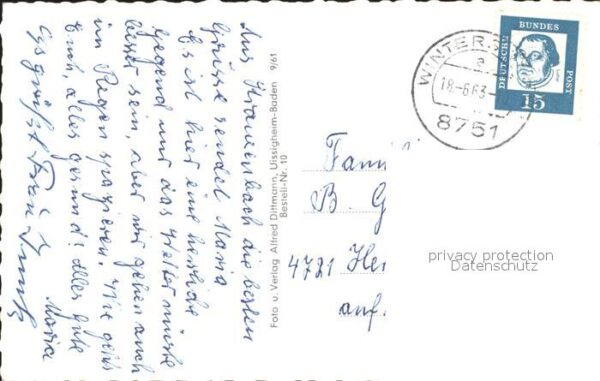 Aus Krausenbach die besten
Grüsse sendet Maria
Es ist hier eine herrliche
Gegend nur das Wetter müsste
besser sein, aber wir gehen auch
im Regen spazieren. Wie geht's
Euch, alles gesund? Alles gute
Maria
Es grüsst Frau
Foto u. Verlag Alfred Dittmann, Uissigheim-Baden 9/61
Bestell-Nr. 10
WINTER
18.-6.63
8751
DEUTSCHE
BUNDES
POST
15
Fami
B. G
4721 He
auf.
privacy protection
Datenschutz